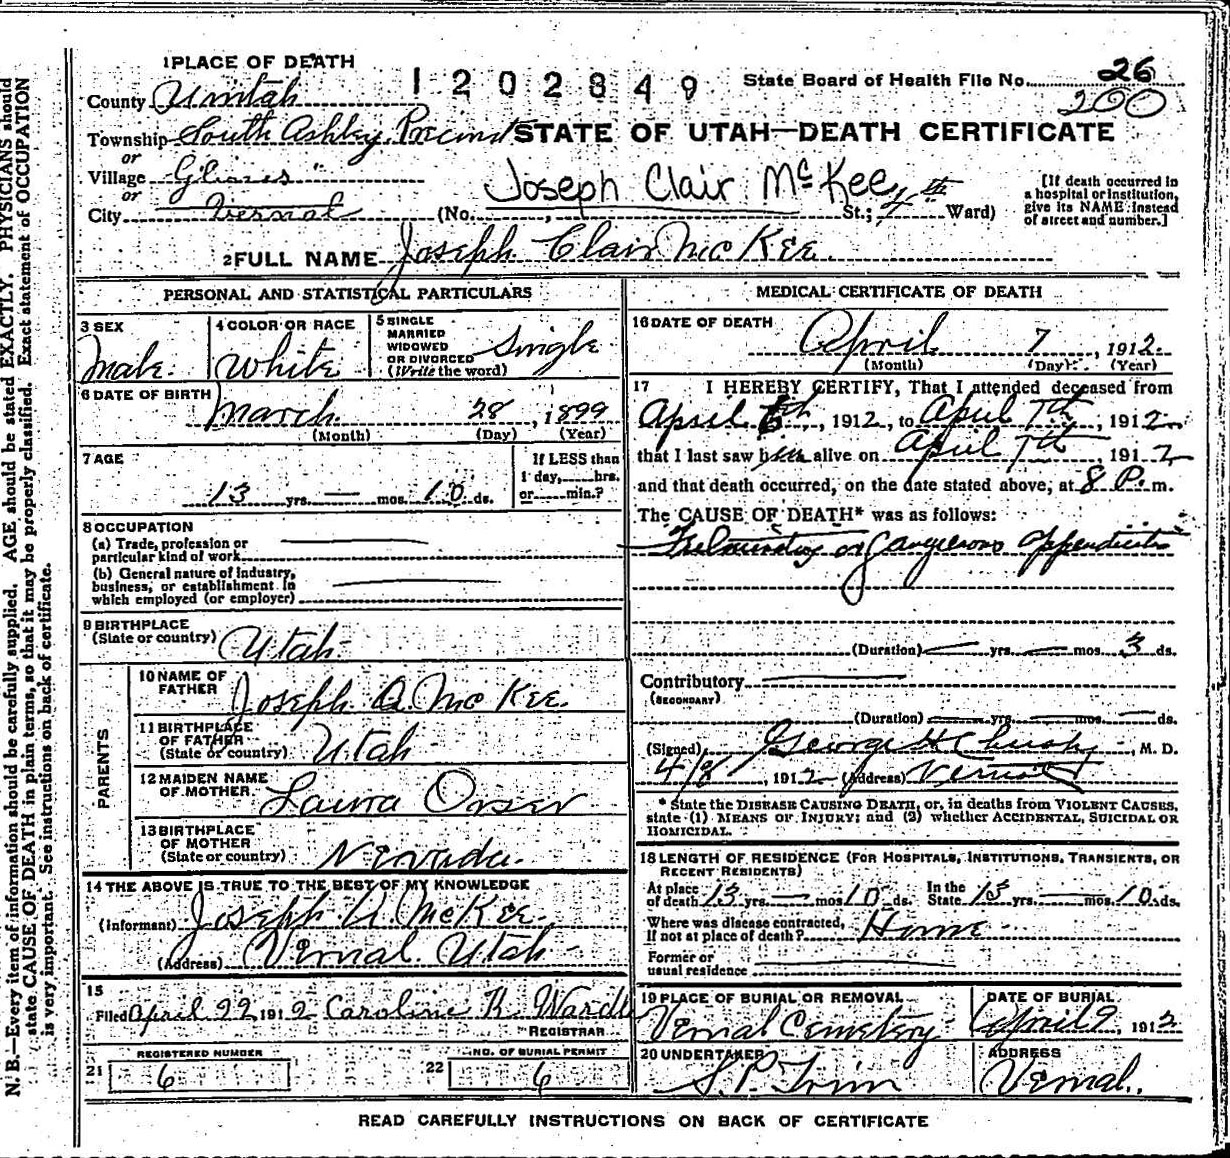 1 PLACE OF DEATH
1202849
State Board of Health File No. 26
200
County Uintah
Township South Ashley Precinct
STATE OF UTAH—DEATH CERTIFICATE
or
Village Glines "
or
Joseph Clair McKee
City Vernal (No. , St.; 4th Ward)
[If death occurred in
a hospital or institution,
give its NAME instead
of street and number.]
2 FULL NAME Joseph Clair McKee.
PERSONAL AND STATISTICAL PARTICULARS
3 SEX
Male.
4 COLOR OR RACE
White
5 SINGLE
MARRIED
WIDOWED
OR DIVORCED
(Write the word)
Single
6 DATE OF BIRTH
March 28, 1899
(Month) (Day) (Year)
7 AGE
13 yrs. — mos. 10 ds.
If LESS than
1 day, hrs.
or min.?
8 OCCUPATION
(a) Trade, profession or
particular kind of work
(b) General nature of industry,
business, or establishment in
which employed (or employer)
9 BIRTHPLACE
(State or country) Utah
PARENTS
10 NAME OF
FATHER Joseph A. McKee.
11 BIRTHPLACE
OF FATHER
(State or country) Utah
12 MAIDEN NAME
OF MOTHER Laura Orser
13 BIRTHPLACE
OF MOTHER
(State or country) Nevada.
14 THE ABOVE IS TRUE TO THE BEST OF MY KNOWLEDGE
(Informant) Joseph A. McKee.
(Address) Vernal Utah
15
Filed April 22, 1912 Caroline R. Wardle
REGISTRAR
REGISTERED NUMBER
21 6
NO. OF BURIAL PERMIT
22 6
MEDICAL CERTIFICATE OF DEATH
16 DATE OF DEATH
April 7, 1912.
(Month) (Day) (Year)
17 I HEREBY CERTIFY, That I attended deceased from
April 6th, 1912, to April 7th, 1912
that I last saw him alive on April 7th, 1912
and that death occurred, on the date stated above, at 8 P. m.
The CAUSE OF DEATH* was as follows:
Fulminating or gangrenous appendicitis
(Duration) — yrs. — mos. 3 ds.
Contributory
(SECONDARY)
(Duration) — yrs. — mos. — ds.
(Signed) George H, M. D.
4/8, 1912 (Address) Vernal
* State the DISEASE CAUSING DEATH, or, in deaths from VIOLENT CAUSES,
state (1) MEANS OF INJURY; and (2) whether ACCIDENTAL, SUICIDAL OR
HOMICIDAL.
18 LENGTH OF RESIDENCE (FOR HOSPITALS, INSTITUTIONS, TRANSIENTS, OR
RECENT RESIDENTS)
At place
of death 13 yrs. — mos. 10 ds.
In the
State 13 yrs. — mos. 10 ds.
Where was disease contracted,
If not at place of death? Home
Former or
usual residence
19 PLACE OF BURIAL OR REMOVAL
Vernal Cemetery
DATE OF BURIAL
April 9, 1912
20 UNDERTAKER
S. P. Trim
ADDRESS
Vernal.
READ CAREFULLY INSTRUCTIONS ON BACK OF CERTIFICATE
N. B.—Every item of information should be carefully supplied. AGE should be stated EXACTLY. PHYSICIANS should
state CAUSE OF DEATH in plain terms, so that it may be properly classified. Exact statement of OCCUPATION
is very important. See instructions on back of certificate.